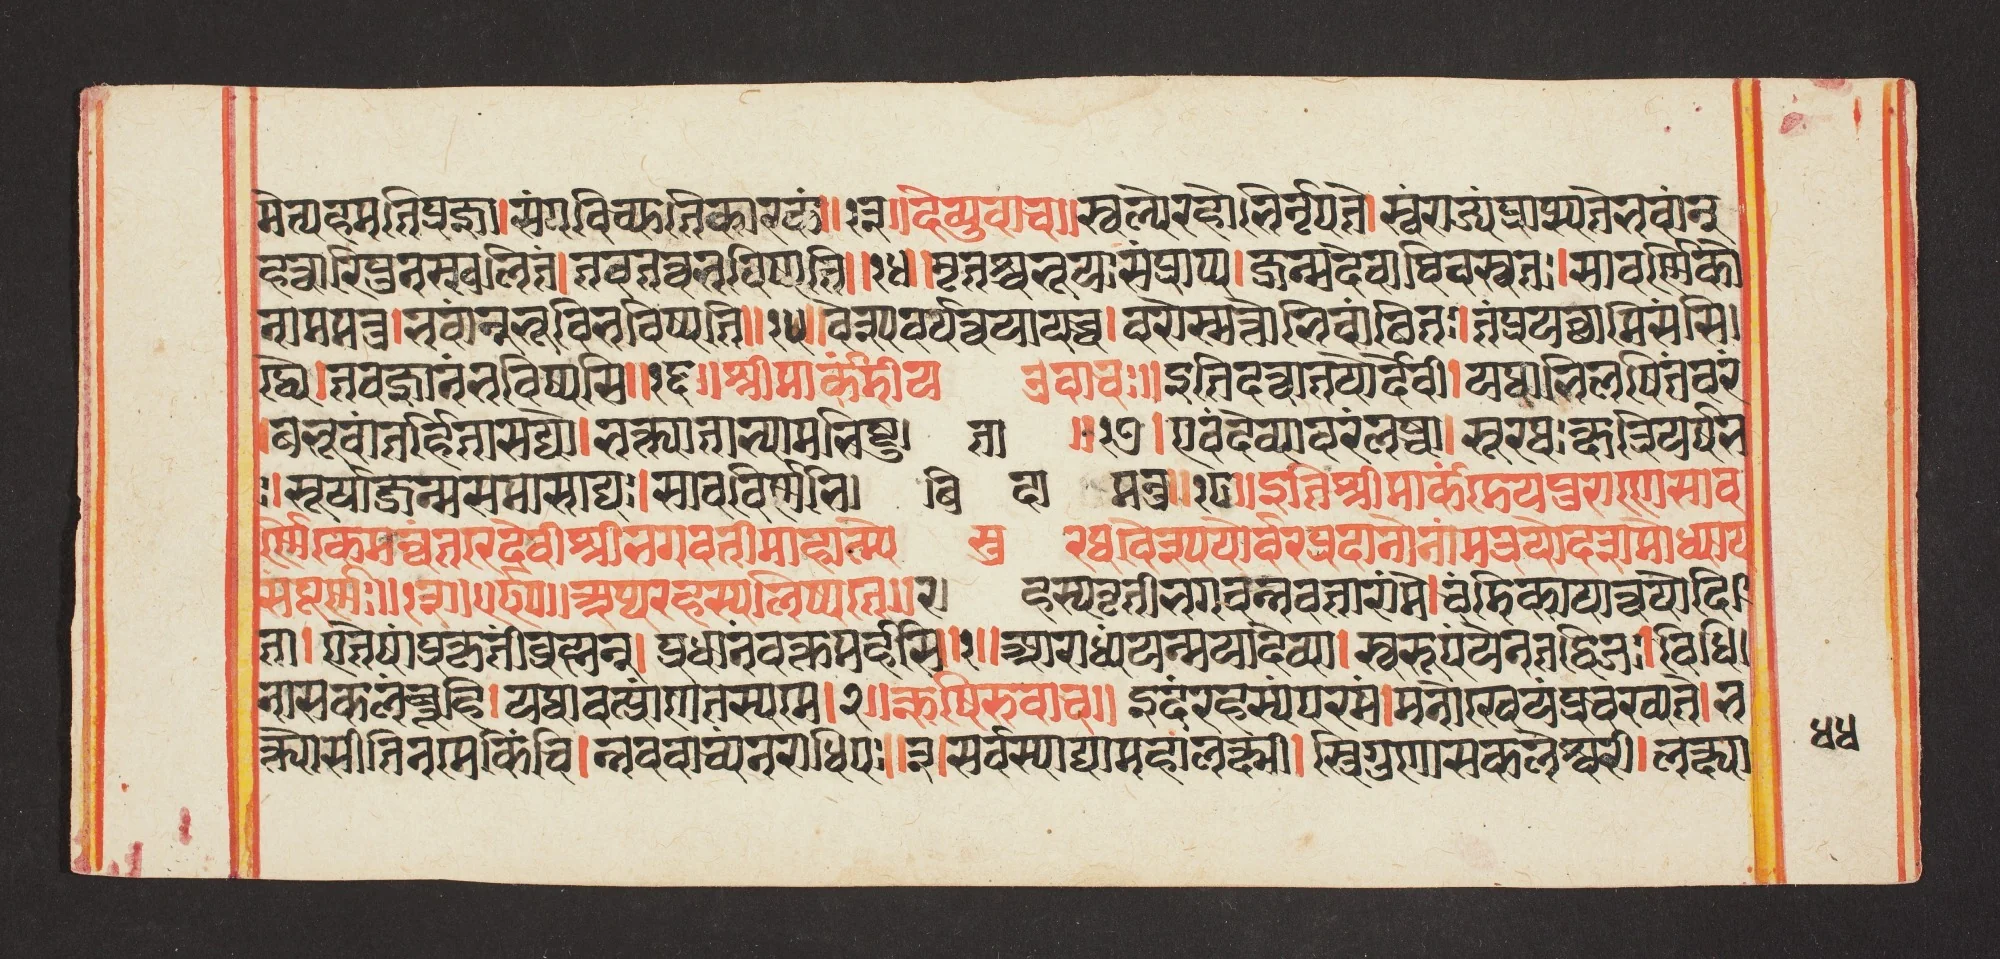 मेत्यहमतिप्रज्ञ।संगविच्युतिकारकं॥१३॥देव्युवाच॥स्वल्पैरहोभिर्नृपते।स्वंराज्यंप्राप्स्यतेभवान्
हत्वारिपुनस्खलितं।तवतत्रभविष्यति॥१४॥मृतश्चभूयःसंप्राप्य।जन्मदेवाद्विवस्वतः।सावर्णिको
नाममनु।भवान्भूविभविष्यति॥१५॥वैश्यवर्यत्वयायश्च।वरोस्मत्तोभिवांछितः।तंप्रयच्छामिसंसि।
द्ध्यै।तवज्ञानंभविष्यसि॥१६॥श्रीमार्कंडेय उवाचः॥इतिदत्वातयोर्देवी।यथाभिलषितंवरं
।बभूवांतर्हितासद्यो।भक्त्याताभ्यामभिष्टु। ता ॥१७।एवंदेव्यावरंलब्ध्वा।सूरथःक्षत्रियर्षभ
ः।सूर्याज्जन्मसमासाद्यः।सावर्विर्णभ। वि ता मनु॥१८॥इतिश्रीमार्कंडेयपुराणेसाव
र्णिकेमन्वंतरेदेवीश्रीभगवतीमाहात्म्ये सु रथवैश्ययोर्वरप्रदानोनांमत्रयोदशोमोध्याय
संपूर्णः॥१३॥ ॥अथरहस्यलिष्यते॥र। हस्यवृतीभगवन्तवतारांमे।चंडिकायात्वयोदि।
ता।एतेषांप्रकृतींब्रह्मन्।प्रधानंवक्तमर्हसि॥१॥आराध्यंयन्मयादेव्या।स्वरूपंयेनतद्विज।विधि।
नासकलंब्रूहि।यथावत्प्रंणतस्यमे।२॥ऋषिरुवाच॥इदंरहस्यंपरमं।मनाख्येयंप्रचरव्यते।भ
क्त्योसीतिनमेकिंचि।न्तववाच्यंनराधिपः॥३।सर्वस्याद्यामहालक्ष्मी।स्त्रिगुणासकलेश्वरी।लक्ष्या
४४